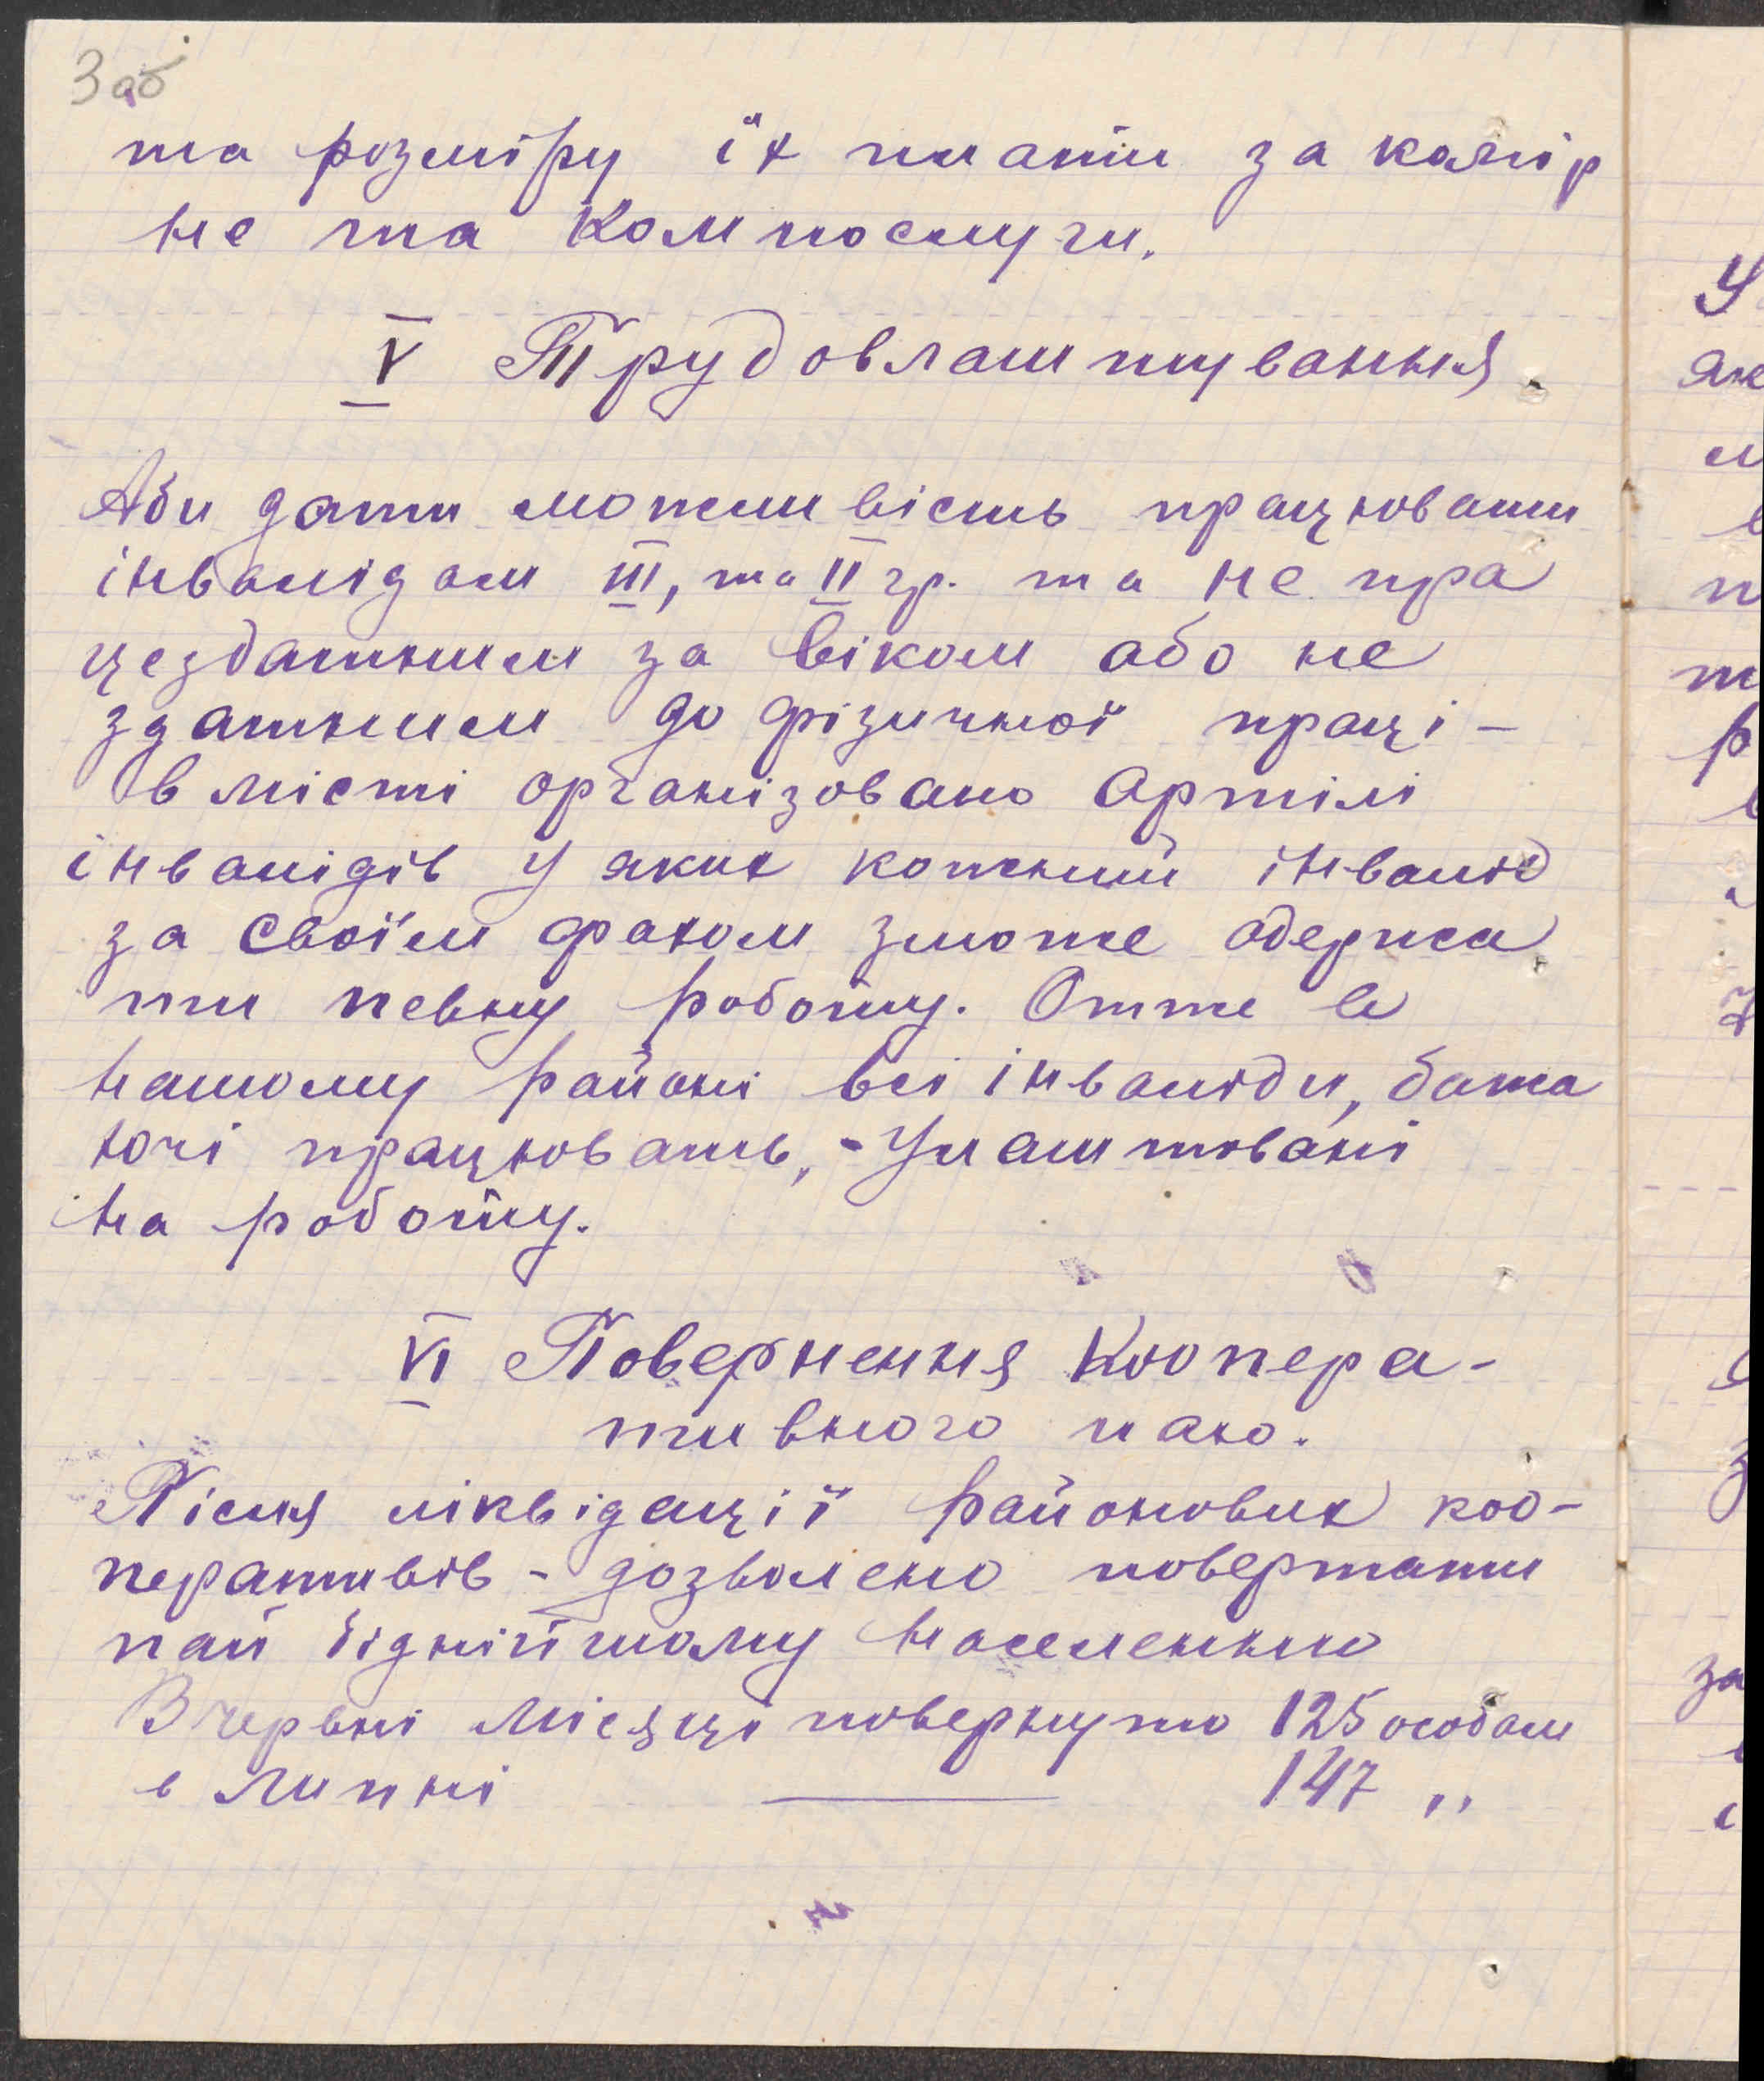 3 об
та розміру їх плати за комір
не та Компослуги.
V Трудовлаштування.
Аби дати можливість працювати
інвалідам III, та II гр. та не пра
цездатним за віком або не
здатним до фізичної праці –
в місті організовано Артілі
інвалідів у яких кожний інвалід
за своїм фахом зможе одержа
ти певну роботу. Отже в
нашому районі всі інваліди, бажа
ючі працювать, - улаштовані
на роботу.
VI Повернення Коопера-
тивного паю.
Після ліквідації районових коо-
перативів - дозволено повертати
пай біднійшому населенню
В червні місяці повернуто 125 особам
в Липні —— 147 „